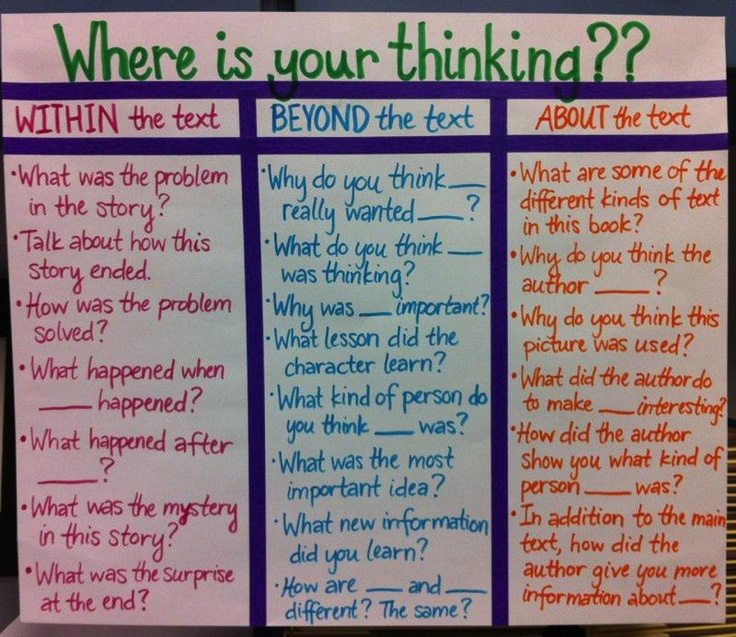 Where is your thinking??
WITHIN the text
•What was the problem
in the story?
•Talk about how this
story ended.
•How was the problem
solved?
•What happened when
____ happened?
•What happened after
____?
•What was the mystery
in this story?
•What was the surprise
at the end?
BEYOND the text
•Why do you think ____
really wanted ____?
•What do you think ____
was thinking?
•Why was ____ important?
•What lesson did the
character learn?
•What kind of person do
you think ____ was?
•What was the most
important idea?
•What new information
did you learn?
•How are ____ and ____
different? The same?
ABOUT the text
•What are some of the
different kinds of text
in this book?
•Why do you think the
author ____?
•Why do you think this
picture was used?
•What did the author do
to make ____ interesting?
•How did the author
show you what kind of
person ____ was?
•In addition to the main
text, how did the
author give you more
information about ____?